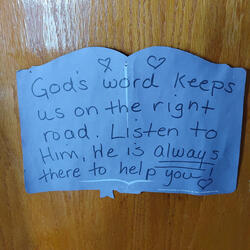 God's word keeps
us on the right
road. Listen to
Him, He is always
there to help you!